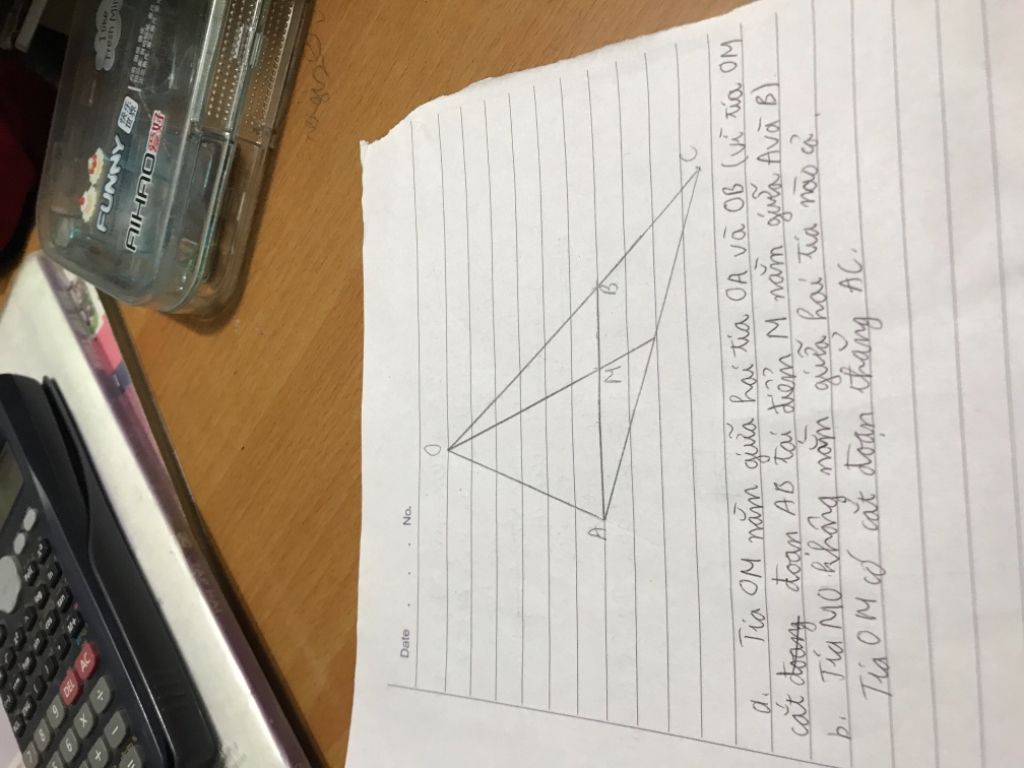 Date . . . No.
O
A
M
B
C
a. Tia OM nằm giữa hai tia OA và OB (vì tia OM
cắt đoạn AB tại điểm M nằm giữa A và B)
b. Tia MO không nằm giữa hai tia nào cả.
Tia OM có cắt đoạn thẳng AC.
FUNNY
AIHAO 爱好
DEL
AC
7
8
9